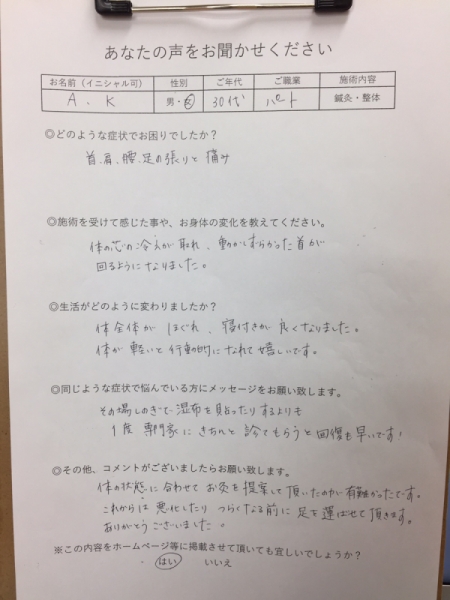 あなたの声をお聞かせください
お名前（イニシャル可） 性別 ご年代 ご職業 施術内容
A、K 男・女 30代 パート 鍼灸・整体
◎どのような症状でお困りでしたか？
首、肩、腰、足の張りと痛み
◎施術を受けて感じた事や、お身体の変化を教えてください。
体の芯の冷えが取れ、動かしずらかった首が
回るようになりました。
◎生活がどのように変わりましたか？
体全体が ほぐれ、寝付きが良くなりました。
体が軽いと行動的になれて嬉しいです。
◎同じような症状で悩んでいる方にメッセージをお願い致します。
その場しのぎで湿布を貼ったりするよりも
1度 専門家に きちんと 診てもらうと回復も早いです!
◎その他、コメントがございましたらお願い致します。
体の状態に合わせて お灸を提案して頂いたのが有難かったです。
これからは 悪化したり つらくなる前に 足を運ばせて頂きます。
ありがとうございました。
※この内容をホームページ等に掲載させて頂いても宜しいでしょうか？
・ はい いいえ